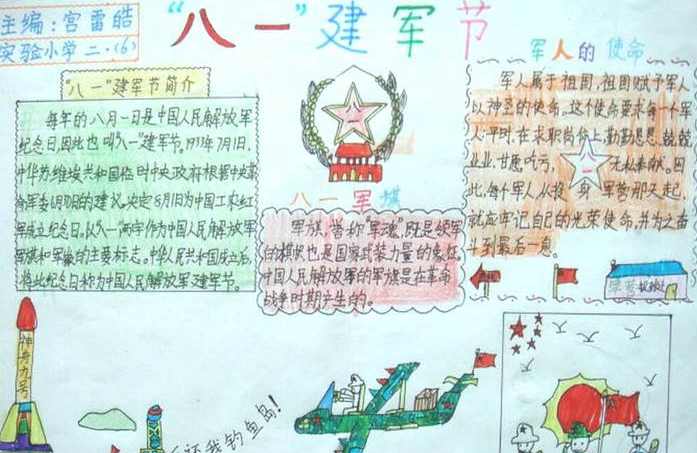 主编:宫雷皓
实验小学二.(6)
"八一"建军节
"八一"建军节简介
每年的八月一日是中国人民解放军
纪念日,因此也叫"八一"建军节。1933年7月1日,
中华苏维埃共和国临时中央政府根据中央革
命军委6月30日的建议,决定8月1日为中国工农红
军成立纪念日。以八一两字作为中国人民解放军
军旗和军徽的主要标志。中华人民共和国成立后,
将此纪念日称为中国人民解放军建军节。
八一军旗
军旗,誉称"军魂",既是领军
的模状也是国家武装力量的象征。
中国人民解放军的军旗是在革命
战争时期产生的。
军人的使命
军人属于祖国,祖国赋予军人
以神圣的使命。这个使命要求每一个军
人平时,在求职岗位上,勤勤恳恳,兢兢
业业,甘愿吃亏,无私奉献。因
此,每个军人从投身军营那天起,
就应牢记自己的光荣使命,并为之奋
斗到最后一息。
神舟九号
还我钓鱼岛!